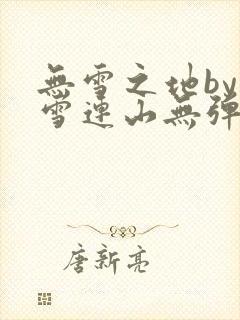 無雪之地by
雪連山無彈
唐新亮